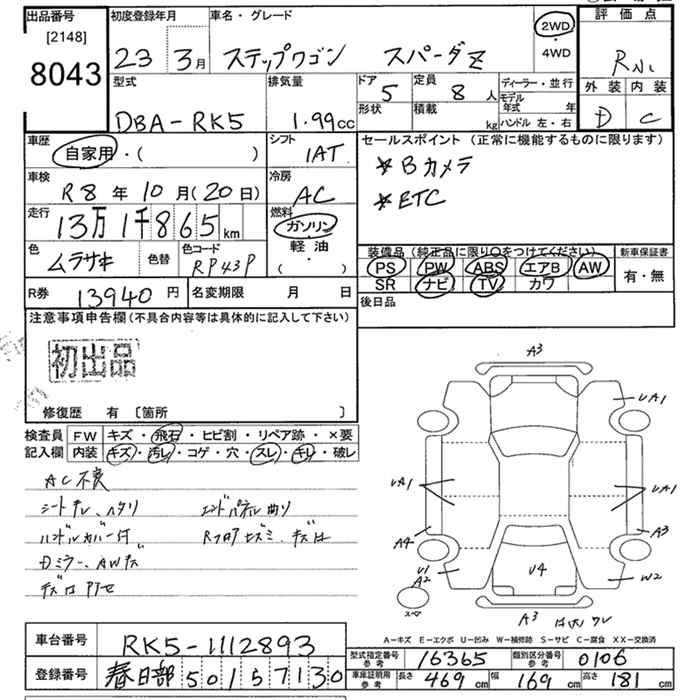 出品番号
[2148]
8043
初度登録年月
23 3月
車名・グレード
ステップワゴン スパーダZ
2WD
・
4WD
評価点
外装 内装
D C
型式
DBA-RK5
排気量
1.99cc
ドア
5
定員
8人
形状
積載
kg
ディーラー・並行
モデル年式 年
ハンドル 左・右
車歴
自家用・( )
シフト
IAT
セールスポイント (正常に機能するものに限ります)
*Bカメラ
*ETC
車検
R8年10月(20日)
冷房
AC
走行
13万1千865km
燃料
ガソリン
軽油
( ・ )
色
ムラサキ
色替
色コード
RP43P
装備品 (純正品に限り○をつけてください)
PS PW ABS エアB AW
SR ナビ TV カワ
新車保証書
有・無
R券
13940円
名変期限 月 日
後日品
注意事項申告欄(不具合内容等は具体的に記入して下さい)
初出品
修復歴 有 〔箇所 〕
検査員記入欄
FW キズ・飛石・ヒビ割・リペア跡・×要
内装 キズ・汚レ・コゲ・穴・スレ・キレ・破レ
AC不良
シートキレ、ヘタリ
エンドパネル曲り
ハンドルカバー付
Dミラー、AWキズ
A3
UA1
UA1
UA1
A4
A3
U1
A2
U4
W2
スペア
A3
A-キズ E-エクボ U-凹み W-補修跡 S-サビ C-腐食 XX-交換済
車台番号
RK5-1112893
登録番号
春日部 501 57130
型式指定番号 参考
16365
類別区分番号 参考
0106
車庫証明用 参考
長さ 469cm 幅 169cm 高さ 181cm